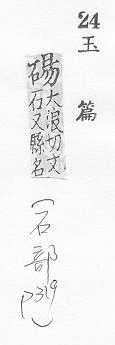 24 玉篇
碭 大浪切文
石又縣名
(石部 P319)